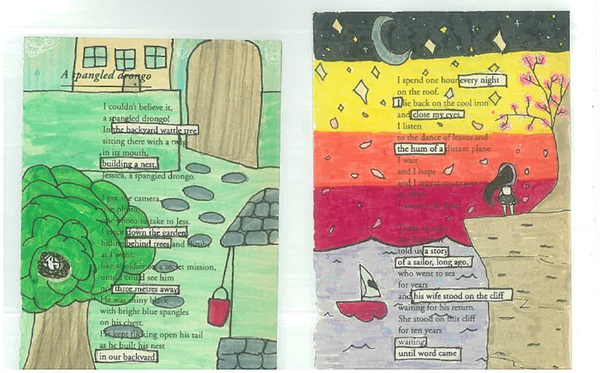 A spangled drongo
I couldn't believe it,
a spangled drongo!
In the backyard wattle tree
sitting there with a twig
in its mouth,
building a nest.
Jessica, a spangled drongo.
I got the camera
photo to take to Jess.
down the garden
hiding behind trees
as I went,
secret mission,
until I could see him
not three metres away
He was shiny black
with bright blue spangles
on his chest.
He kept flicking open his tail
as he built his nest
in our backyard.
I spend one hour every night
on the roof.
I lie back on the cool iron
and close my eyes.
I listen
to the dance of leaves and
the hum of a distant plane.
I wait
and I hope
and I repeat my
told us a story
of a sailor, long ago,
who went to sea
for years
and his wife stood on the cliff
waiting for his return.
She stood on this cliff
for ten years
waiting
until word came